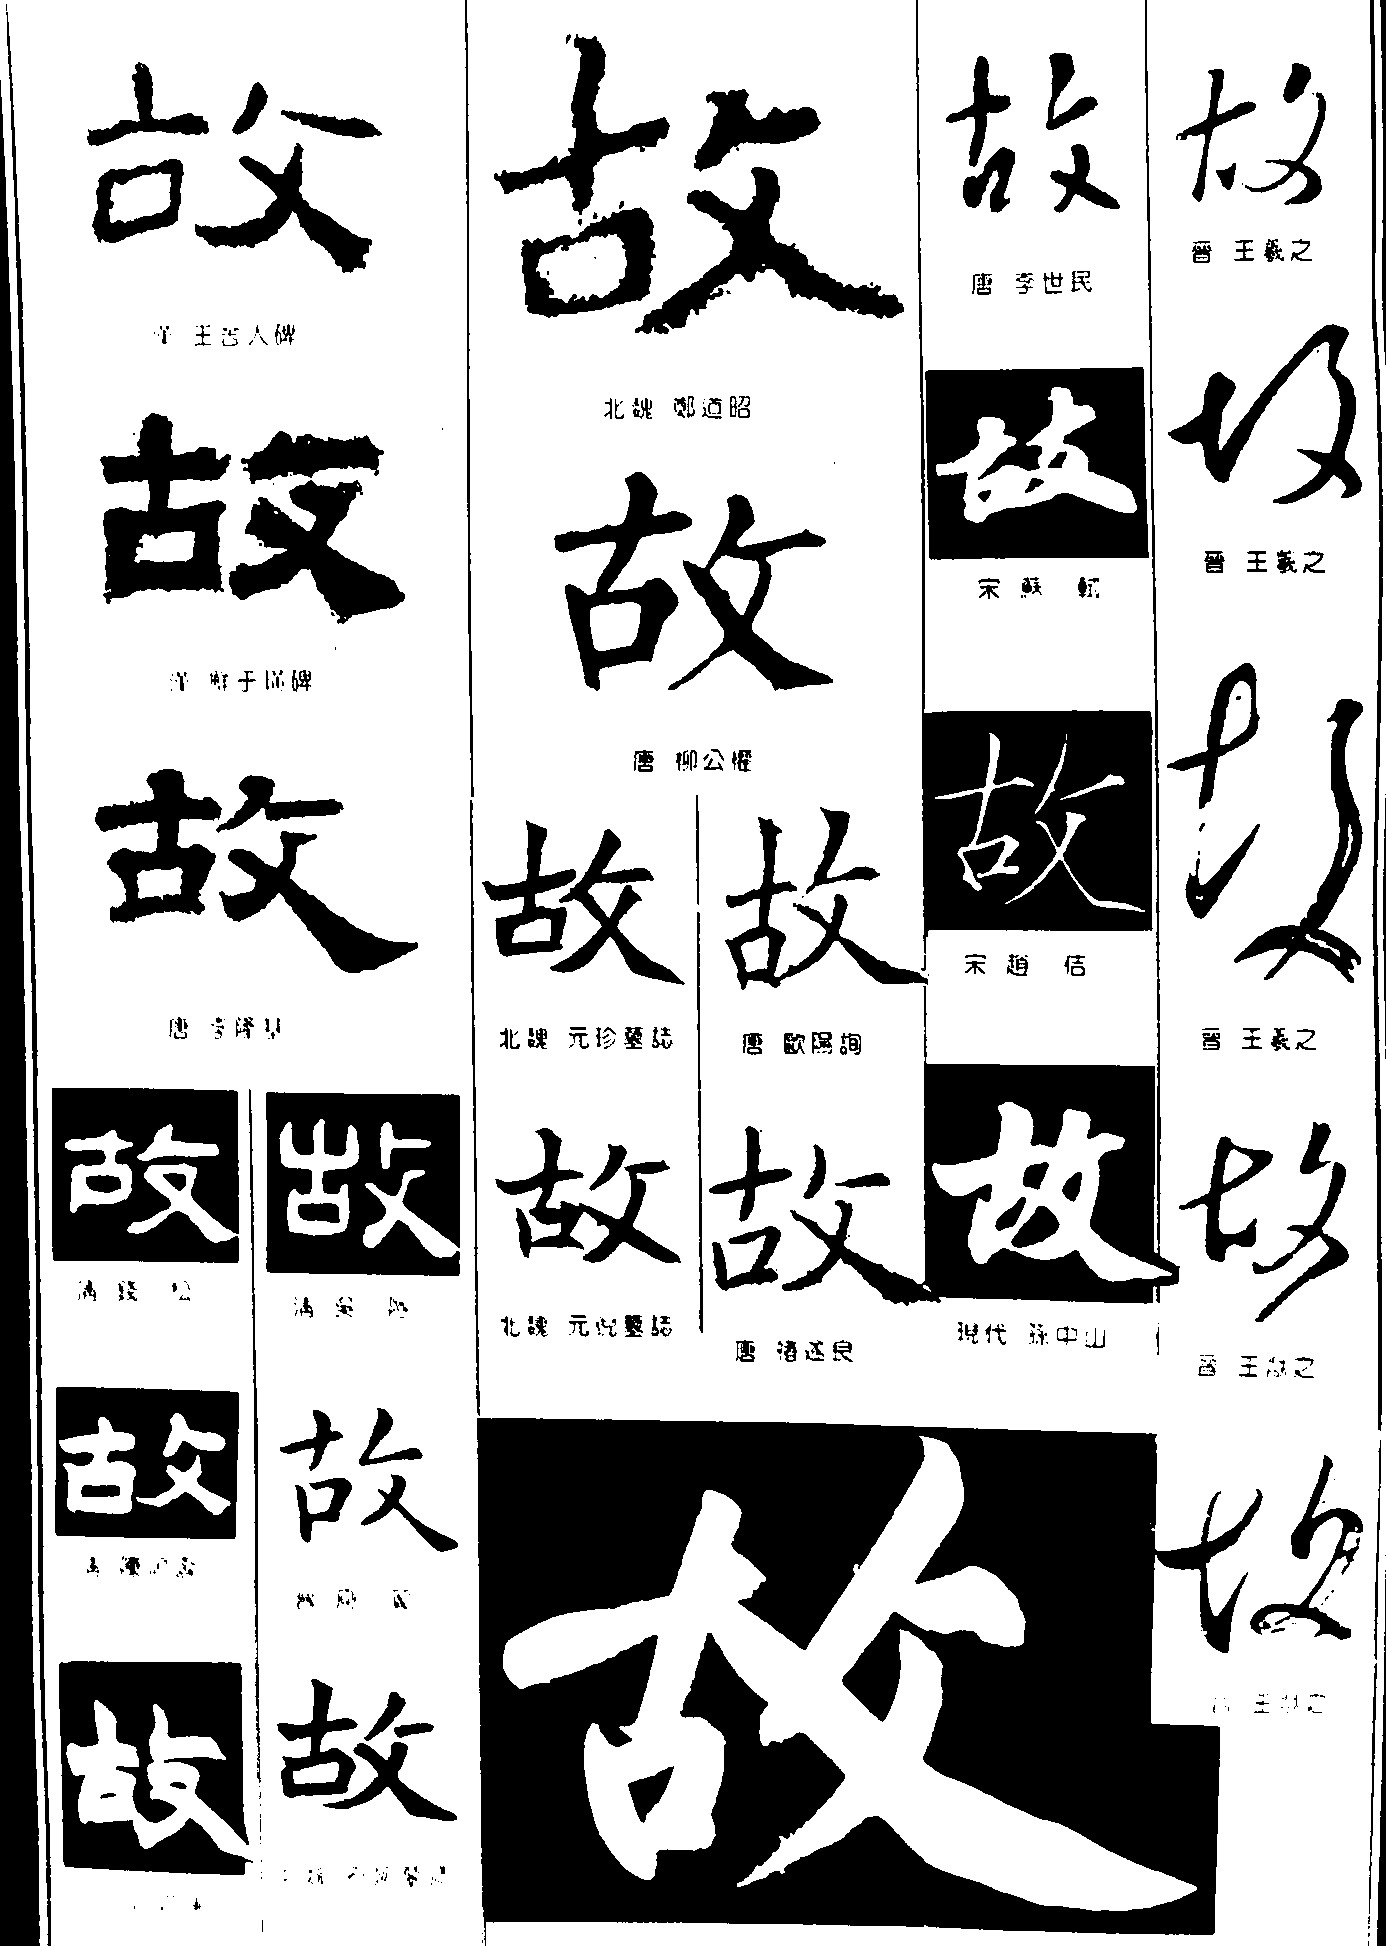 故
晉 王羲之
故
晉 王羲之
故
晉 王羲之
故
晉 王獻之
故
晉 王獻之
故
唐 李世民
故
宋 蘇 軾
故
宋 趙 佶
故
現代 孫中山
故
北魏 鄭道昭
故
唐 柳公權
故
唐 歐陽詢
故
唐 褚遂良
故
北魏 元珍墓誌
故
北魏 元倪墓誌
故
故
漢 王舍人碑
故
漢 鮮于璜碑
故
唐 李隆基
故
清 吳
故
故
故
清 錢 松
故
故